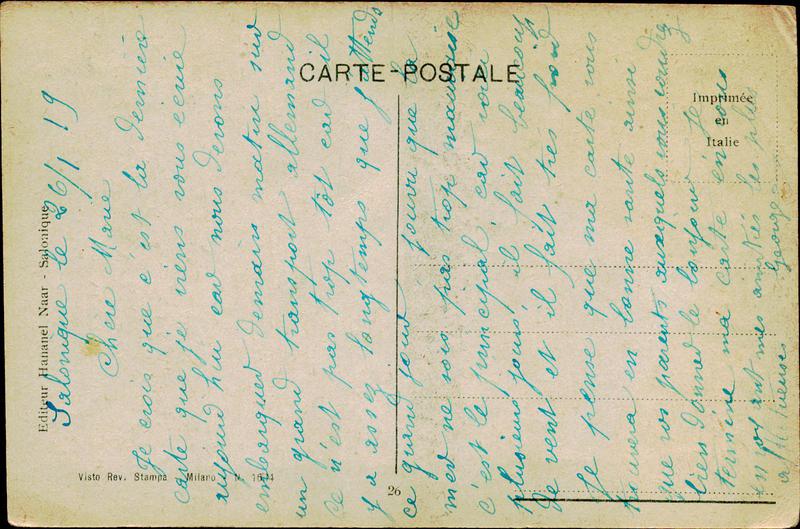 CARTE-POSTALE
Imprimée
en
Italie
Editeur Hananel Naar - Salonique
Visto Rev. Stampa Milano N.
26
Salonique le 26/1 19
Chère Marie
Je crois que c'est la dernière
carte que je viens vous écrire
aujourd'hui car nous devons
embarquer demain matin sur
un grand transport allemand
ce n'est pas trop tôt car il
y a assez longtemps que j'attends
ce grand jour pourvu que la
mer ne sois pas trop mauvaise
c'est le principal car voici
plusieurs jours il fait beaucoup
de vent et il fait très froid
Je pense que ma carte vous
trouvera en bonne santé ainsi
que vos parents auxquels vous voudrez
bien donner le bonjour Je
termine ma carte en vous
envoyant mes amitiés les plus
Georges